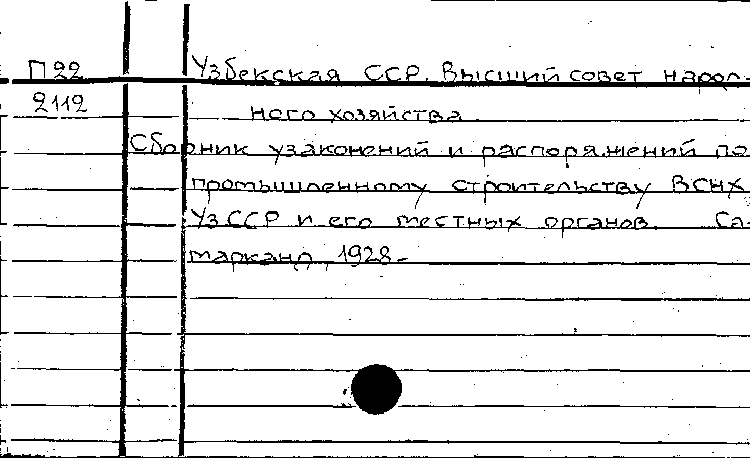 П22 Узбекская ССР. Высший совет народ-
2112 ного хозяйства.
Сборник узаконений и распоряжений по
промышленному строительству ВСНХ
УзССР и его местных органов. Са-
марканд, 1928-